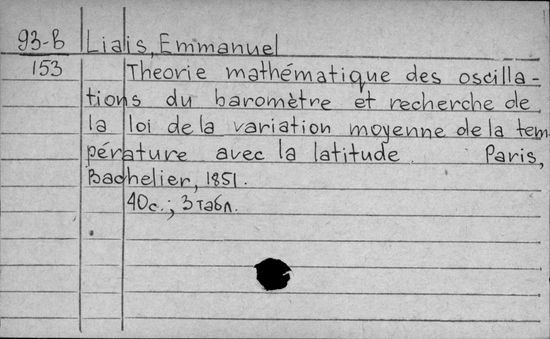 93-В Liais, Emmanuel
153 Theorie mathématique des oscilla-
tions du baromètre et recherche de
la loi de la variation moyenne de la tem
pérature avec la latitude. Paris,
Bachelier, 1851.
40с.; 3 табл.